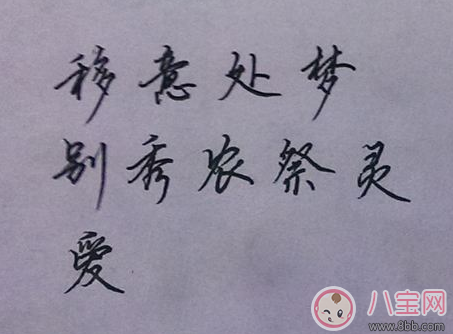 移意处梦
别秀农祭灵
爱
八宝网
www.8bb.com